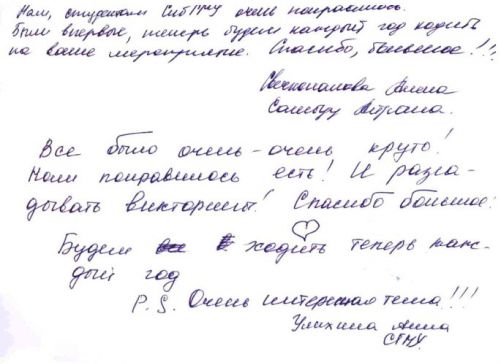 Нам, студентам СибГМУ очень понравилось.
Были впервые, теперь будем каждый год ходить
на ваше мероприятие. Спасибо, большое!!!
Анна
Все было очень-очень круто!
Нам понравилось есть! И разга-
дывать викторины! Спасибо большое!
Будем ходить теперь каж-
дый год
P.S. Очень интересная тема!!!
Улихина Анна
СГМУ